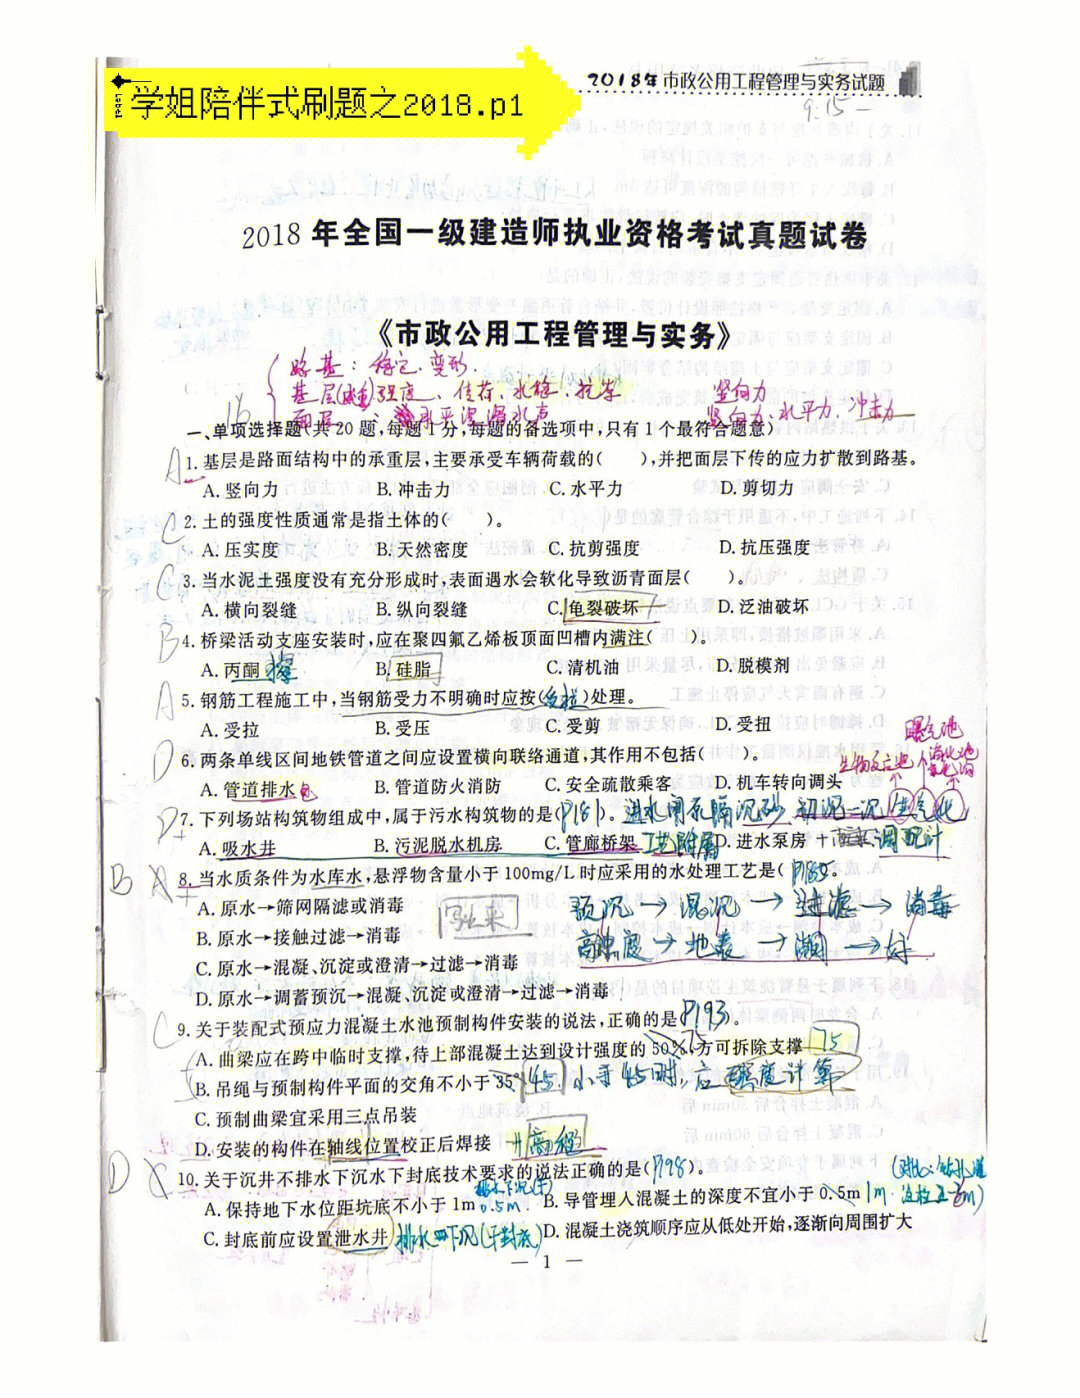 2018年市政公用工程管理与实务试题
学姐陪伴式刷题之2018.p1
9:15—
2018年全国一级建造师执业资格考试真题试卷
《市政公用工程管理与实务》
路基：稳定、变形
竖向力
竖向力、水平力、冲击力
一、单项选择题(共20题,每题1分,每题的备选项中,只有1个最符合题意)
A 1. 基层是路面结构中的承重层,主要承受车辆荷载的(  ),并把面层下传的应力扩散到路基。
A. 竖向力 B. 冲击力 C. 水平力 D. 剪切力
C 2. 土的强度性质通常是指土体的(  )。
A. 压实度 B. 天然密度 C. 抗剪强度 D. 抗压强度
C 3. 当水泥土强度没有充分形成时,表面遇水会软化导致沥青面层(  )。
A. 横向裂缝 B. 纵向裂缝 C. 龟裂破坏 D. 泛油破坏
B 4. 桥梁活动支座安装时,应在聚四氟乙烯板顶面凹槽内满注(  )。
A. 丙酮擦 B. 硅脂 C. 清机油 D. 脱模剂
A 5. 钢筋工程施工中,当钢筋受力不明确时应按(受拉)处理。
A. 受拉 B. 受压 C. 受剪 D. 受扭
曝气池
D 6. 两条单线区间地铁管道之间应设置横向联络通道,其作用不包括(  )。
生物反应池 消化池
A. 管道排水 B. 管道防火消防 C. 安全疏散乘客 D. 机车转向调头
7. 下列场站构筑物组成中,属于污水构筑物的是(P181)。进水闸泵隔沉砂 初沉二沉
A. 吸水井 B. 污泥脱水机房 C. 管廊桥架 工艺附属 D. 进水泵房 调配计
B A 8. 当水质条件为水库水,悬浮物含量小于100mg/L时应采用的水处理工艺是(P180)。
A. 原水→筛网隔滤或消毒
预沉→混沉→过滤→消毒
B. 原水→接触过滤→消毒
C. 原水→混凝、沉淀或澄清→过滤→消毒
D. 原水→调蓄预沉→混凝、沉淀或澄清→过滤→消毒
C 9. 关于装配式预应力混凝土水池预制构件安装的说法,正确的是P193)。
A. 曲梁应在跨中临时支撑,待上部混凝土达到设计强度的50%,方可拆除支撑 75
B. 吊绳与预制构件平面的交角不小于35° 45. 小于45时,应强度计算
C. 预制曲梁宜采用三点吊装
D. 安装的构件在轴线位置校正后焊接 +高程
D 10. 关于沉井不排水下沉水下封底技术要求的说法正确的是(P198)。
A. 保持地下水位距坑底不小于1m 0.5m. B. 导管埋入混凝土的深度不宜小于0.5m 1m
C. 封底前应设置泄水井 排水下沉(干封底) D. 混凝土浇筑顺序应从低处开始,逐渐向周围扩大
— 1 —